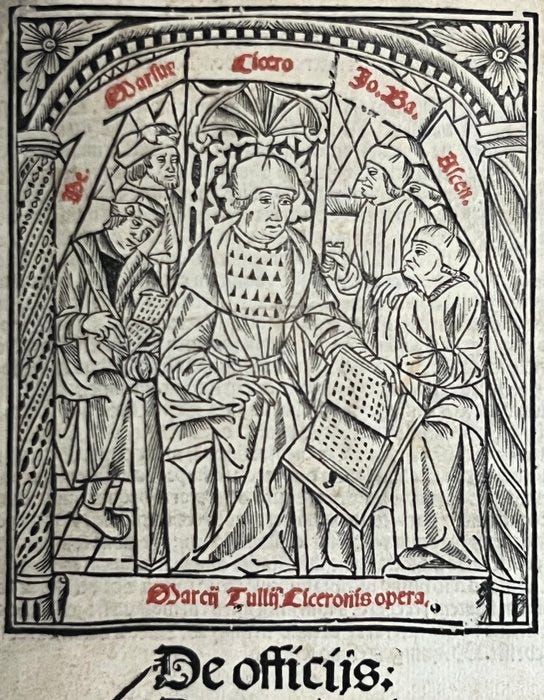 Pe.
Marsus
Cicero
Jo. Ba.
Ascen.
Marcij Tullij Ciceronis opera.
De officijs: